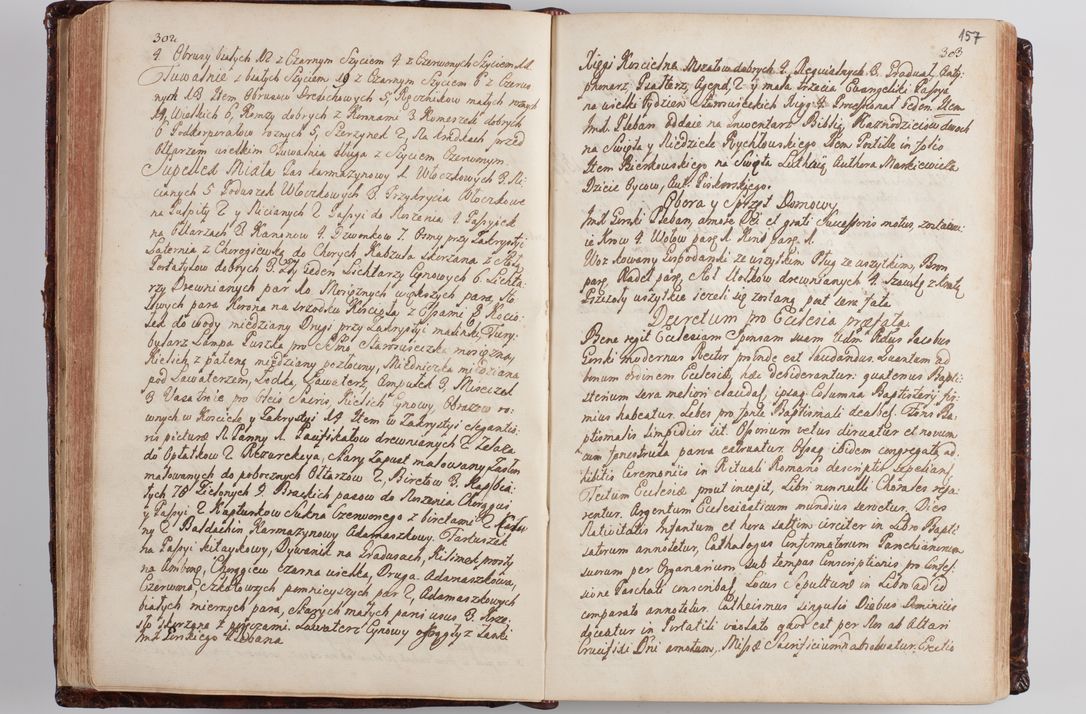 302
4. Obrusy białych 12 z Czarnym Szyciem 4. z Czerwonych Szyciem 11.
Tuwalnie z białych Szyciem 19 z Czarnym Szyciem 6 z Czerwo
nych 13. Item Obrusów 5, Ręczników małych rożnych
14. Wielkich 6, Komży dobrych z Koronami 3. Komeszek dobrych
6 Podkorporałow rożnych 5, 2, Na przed
Ołtarzem wielkim Tuwalnia długa z Szyciem Czerwonym.
Supellex Miała Pas karmazynowy 1. Włoczkowych 3. Ni
cianych 5. Poduszek Włoczkowych 8. Przykrycia Włoczkowe
na Pulpity 2 y Nicianych 2. Passyi do Noszenia 1. Passyjek
na Ołtarzach 3 Kanonow 4. Dzwonkow 7. Osmy przy Zakrystyi
Laternia z Chorągiewką do Chorych Kabzula Skorzana z Stołą
Portatylow dobrych 3. Zły Jeden Lichtarzy Cynowych 6. Lichta
rzy Drewnianych par 10 Mosiężnych większych para, Sto
łowych para Korona na srzodku Kościoła z Ossami 3. Kocio
łek do wody miedziany Drugi przy Zakrystyi malinki, Tury
bularz Lampa Puszka pro mosiężna,
Kielich z pateną miedziany pozłocany, Miedniczka miedziana
pod Lawaterzem, Łodka, Lawaterz, Ampułek 3. Mosiężn
3. Vasa tnie pro Oleis Sacris, Kielich Cynowy, Obrazow ro
wnych w Kościele y Zakrystyi 14. Item w Zakrystyi elegantio
ris picturæ N. Panny 1. Pacifikałow drewnianych 2. Żelaza
do Opłatkow 2. Rezurekcya, Stary Zapust malowany Zasłon
malowanych do pobocznych Ołtarzow 2, Biretow 3. Kap białłych 78 Zielonych 9. Braskich pasow do Noszenia Chorągwi
y Passyi 2 Kapturkow Sukna Czerwonego z biretami 2.
ny 2 Baldachin Karmazynowy Adamaszkowy. Fartuszek
na Passyi kitaykowy, Dywanik na Gradusach, Kilimek prosty
na Ambonę, Chorągiew Czarna wielka, Druga Adamaszkowa,
Czerwona, Szkołowych pomnieyszych par 2, Adamaszkowych
białych miernych para, Starych małych para usus 3. Krze
sło Skorzane z poręczami. Lawaterz Cynowy Łaski
Jmć Gorskiego Plebana
157
303
Xięgi Kościelne Mszałow dobrych 4. Requialnych 3. Graduał, Anty-
phonarz, Psałterz, Agend, 2 y mała trzecia Evangeliki Passya
na wielki Tydzień Xięg 4. Processionał Jeden. Item
Jmć Pleban oddaie na Inwentarz Biblią Kaznodzieiow dwoch
na Swięta y Niedziele Rychłowskiego Item Postille in folio
Item Bieńkowskiego na Swięta Authora Markiewicza
Dzieie Oycow, Piskorskiego.
Obora y Sprzęt Domowy
Jmć Gorski Pleban, amore Dei et grati Successoris motus zostawu
ie Krow 4. Wołow parę 1. Koni parę 1.
Woz kowany Gospodarski ze wszytkim Pług ze wszytkim, Bron
parę Radeł parę, Stoł Stołkow drewnianych 4. Szawkę z Szatą
Pszczoły wszytkie ieżeli się zostaną post sera fata
Decretum pro Ecclesia præfata.
Bene regit Ecclesiam Sponsam suam Adm. Rdus Jacobus
Gorski Modernus Rector proinde est laudandus, Quantum ad
bonum ordinem Ecclesiæ hæc desiderantur: quatenus Bapti
sterium sera meliori claudat ipsaq Columna Baptisterij fir
mius habeatur. Lebes pro fonte Baptismali dealbet. Fons Ba
ptismalis limpidior sit. Ossorium vetus diruatur et novum
cum fenestrula parva extruatur Ossaq ibidem congregata, ad
hibitis Ceremoniis in Rituali Romano descriptis sepeliant.
Tectum Ecclesiæ prout incepit, Libri nonnulli Chorales repa
rentur. Argentum Ecclesiasticum mundius servetur. Dies
Nativitatis Infantum et hora saltim circiter in Libro Bapti
satorum annotetur, Cathalogus Confirmatorum Parochianorum
suorum per Organarium sub tempus Conscriptionis pro Confes
sione Paschali conscribat, Locus Sepulturæ in Libro ad id
comparato annotetur. Catheismus singulis Diebus Dominicis
doceatur in Portatili violato quod est per Nos ab Altari
Crucifixi Dni amotum, Missæ Sacrificium non absolvatur. Erectio